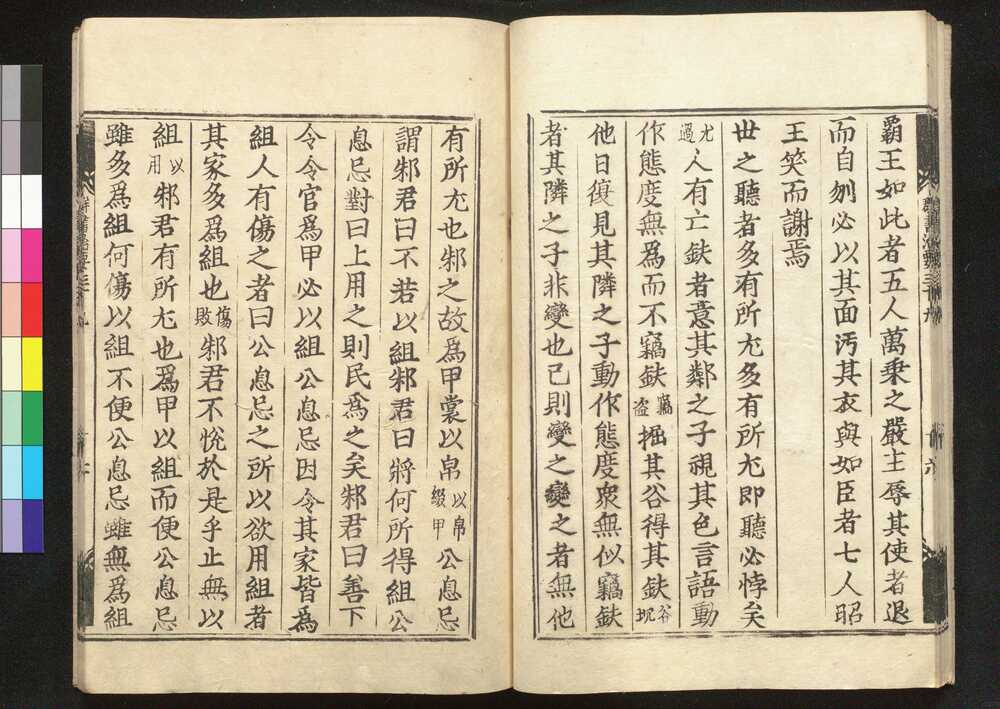 霸王如此者五人萬乗之嚴主辱其使者退
而自刎必以其面汚其衣與如臣者七人昭
王笑而謝焉
世之聽者多有所尤多有所尤即聽必悖矣
尤過人有亡鈇者意其鄰之子視其色言語動
作態度無爲而不竊鈇竊盗掘其谷得其鈇谷坑
他日復見其隣之子動作態度衆無似竊鈇
者其隣之子非變也己則變之變之者無他
有所尤也邾之故爲甲裳以帛以帛綴甲公息忌
謂邾君曰不若以組邾君曰將何所得組公
息忌對曰上用之則民爲之矣邾君曰善下
令令官爲甲必以組公息忌因令其家皆爲
組人有傷之者曰公息忌之所以欲用組者
其家多爲組也傷敗邾君不悅於是乎止無以
組以用邾君有所尤也爲甲以組而便公息忌
雖多爲組何傷以組不便公息忌雖無爲組